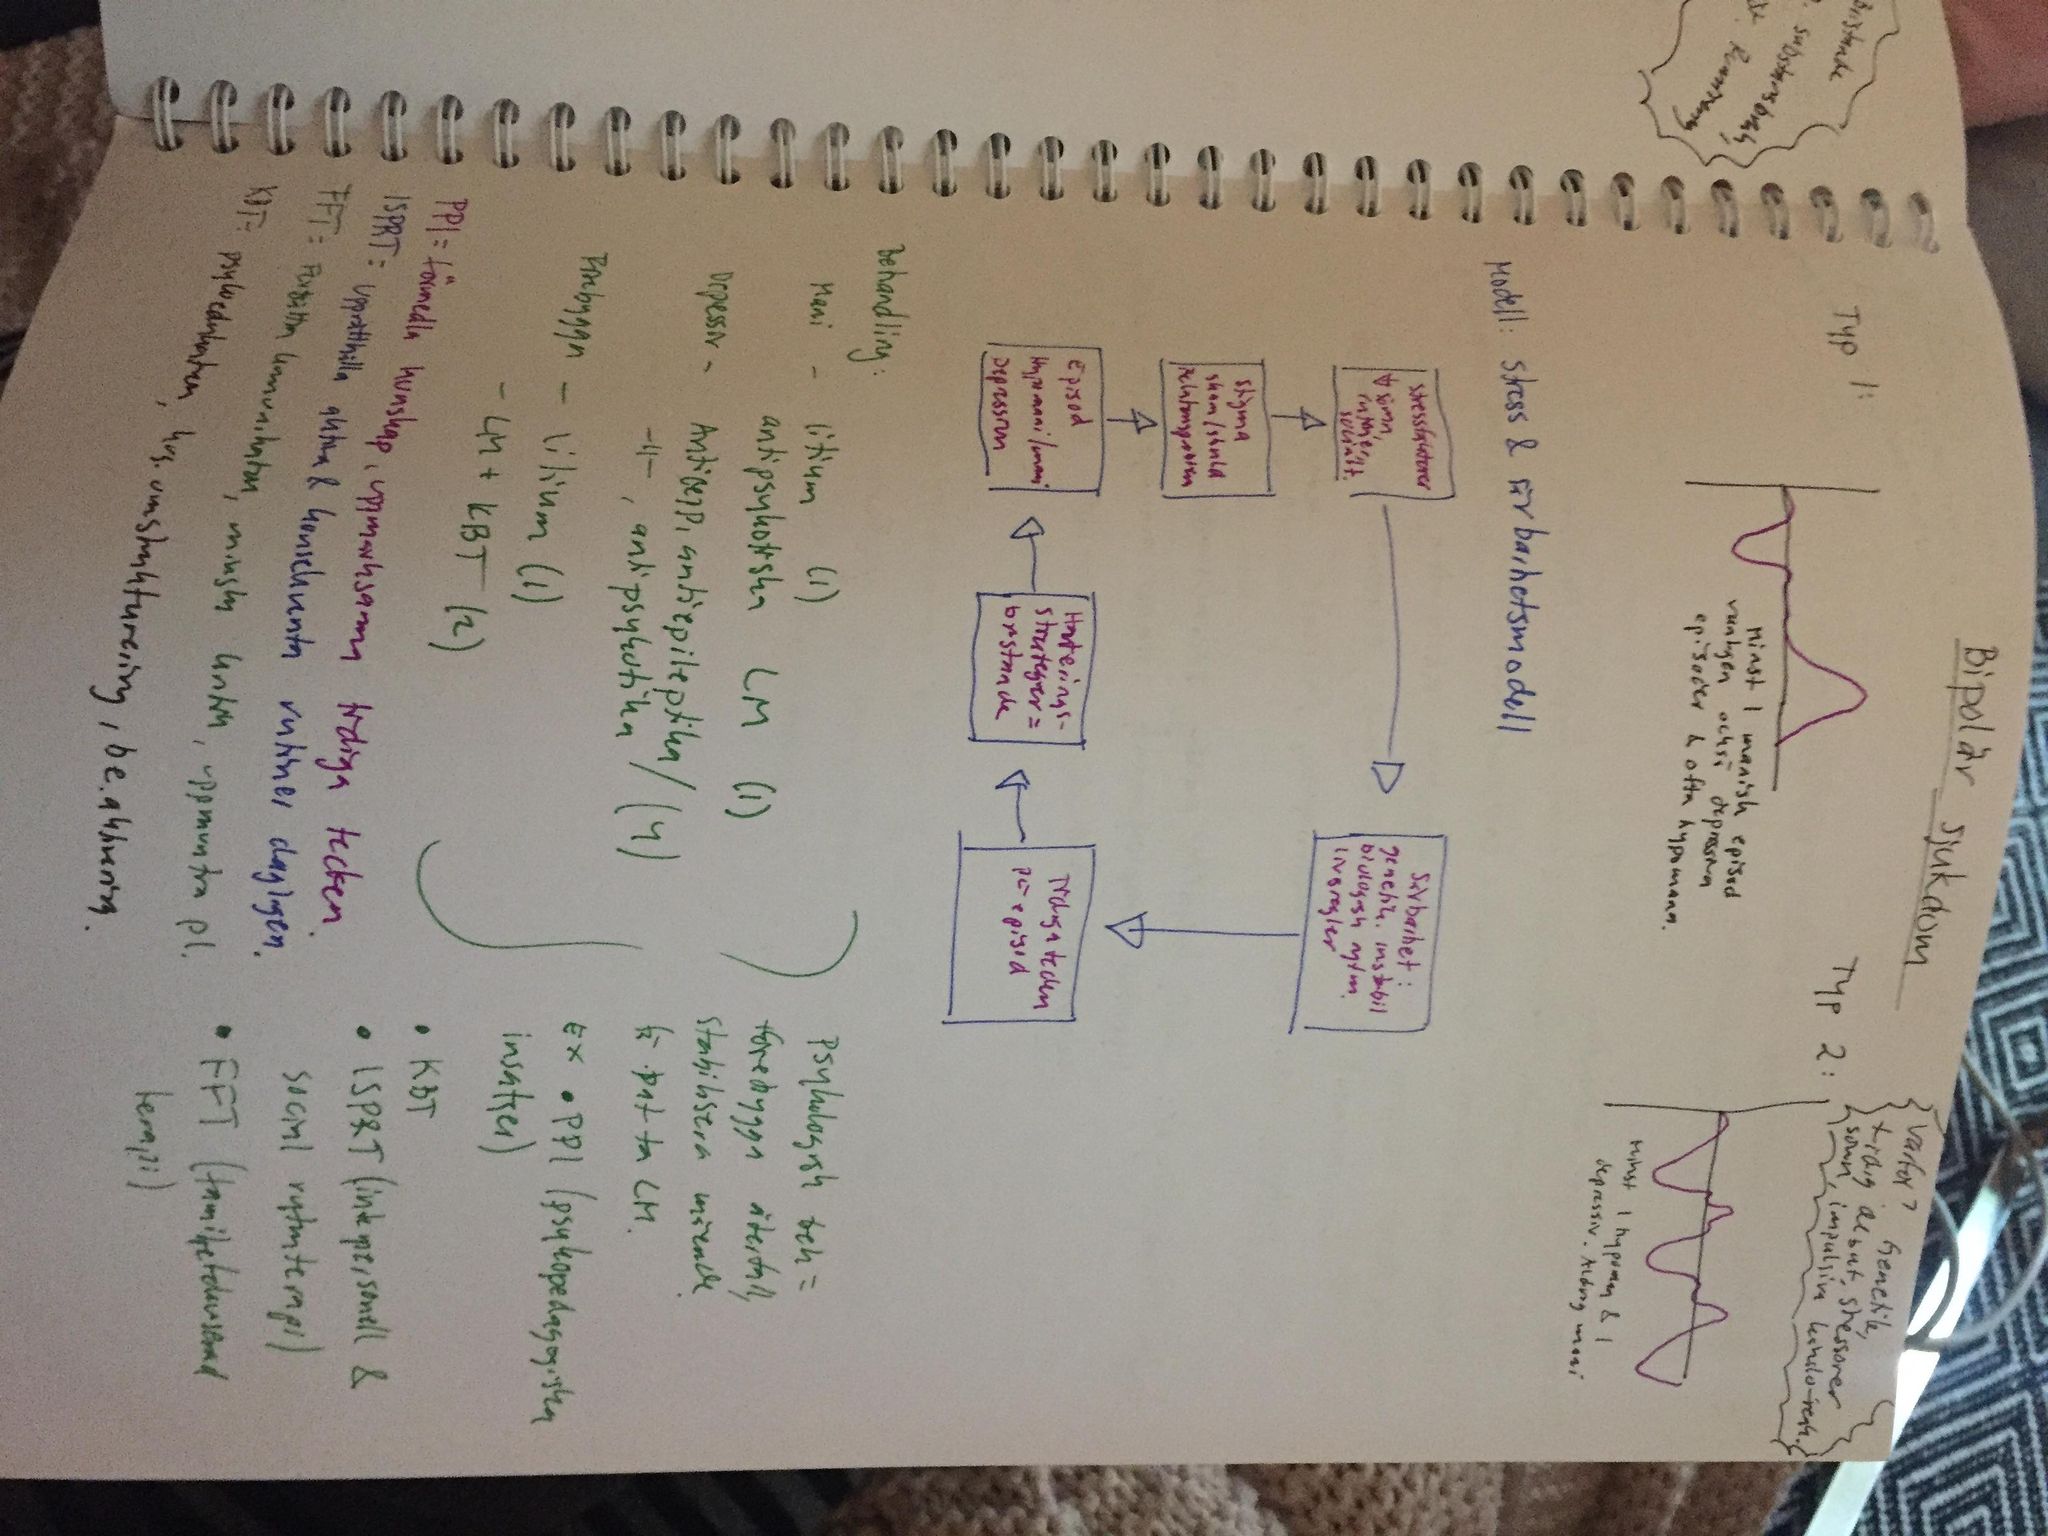 Bipolär sjukdom
Typ 1:
Minst 1 manisk episod
vanligen också depressiva
episoder & ofta hypomana.
Typ 2:
Minst 1 hypoman & 1
depressiv. Aldrig mani
Varför? Genetik,
tidig debut, stressorer
sömn, impulsiv
Modell: stress & sårbarhetsmodell
stressfaktorer
sömn
socialt
Sårbarhet:
genetik, instabil
biologisk rytm.
livsregler
Tidiga tecken
på episod
Hanterings-
strategier =
bristande
Episod
Hypomani/mani
Depression
Stigma
skam/skuld
relationsproblem
Behandling:
Mani - litium (1)
antipsykotiska LM (1)
Depressiv - Antidep, antiepileptika/
-11-, antipsykotika (4)
Förebygga - litium (1)
- LM + KBT (2)
Psykologisk beh =
förebygga återfall,
stabilisera mående
få pat ta LM.
Ex • PPI (psykopedagogiska
insatser)
• KBT
• ISPRT (interpersonell &
social rytmterapi)
• FFT (familjefokuserad
terapi)
PPI = förmedla kunskap, uppmärksamma tidiga tecken.
ISPRT = upprätthålla aktiva & konsekventa rutiner dagligen.
FFT = Förbättra kommunikation, minska kritik, uppmuntra pt.
KBT = psykoedukation, kog. omstrukturering, be.aktivering.